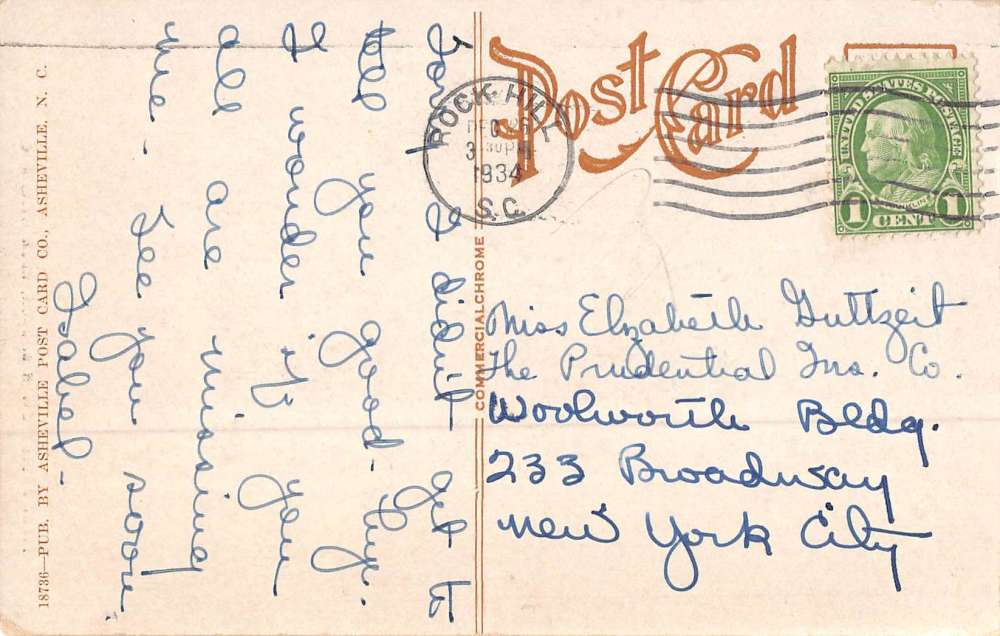 Post Card
ROCK HILL
DEC 26
3 30 PM
1934
S.C.
UNITED STATES POSTAGE
FRANKLIN
1 CENT 1
Sorry I didn't get to
tell you good-bye.
I wonder if you
all are missing
me. See you soon,
Isabel-
Miss Elizabeth Guttzeit
The Prudential Ins. Co.
Woolworth Bldg.
233 Broadway
New York City
COMMERCIALCHROME
18736—PUB. BY ASHEVILLE POST CARD CO., ASHEVILLE, N. C.